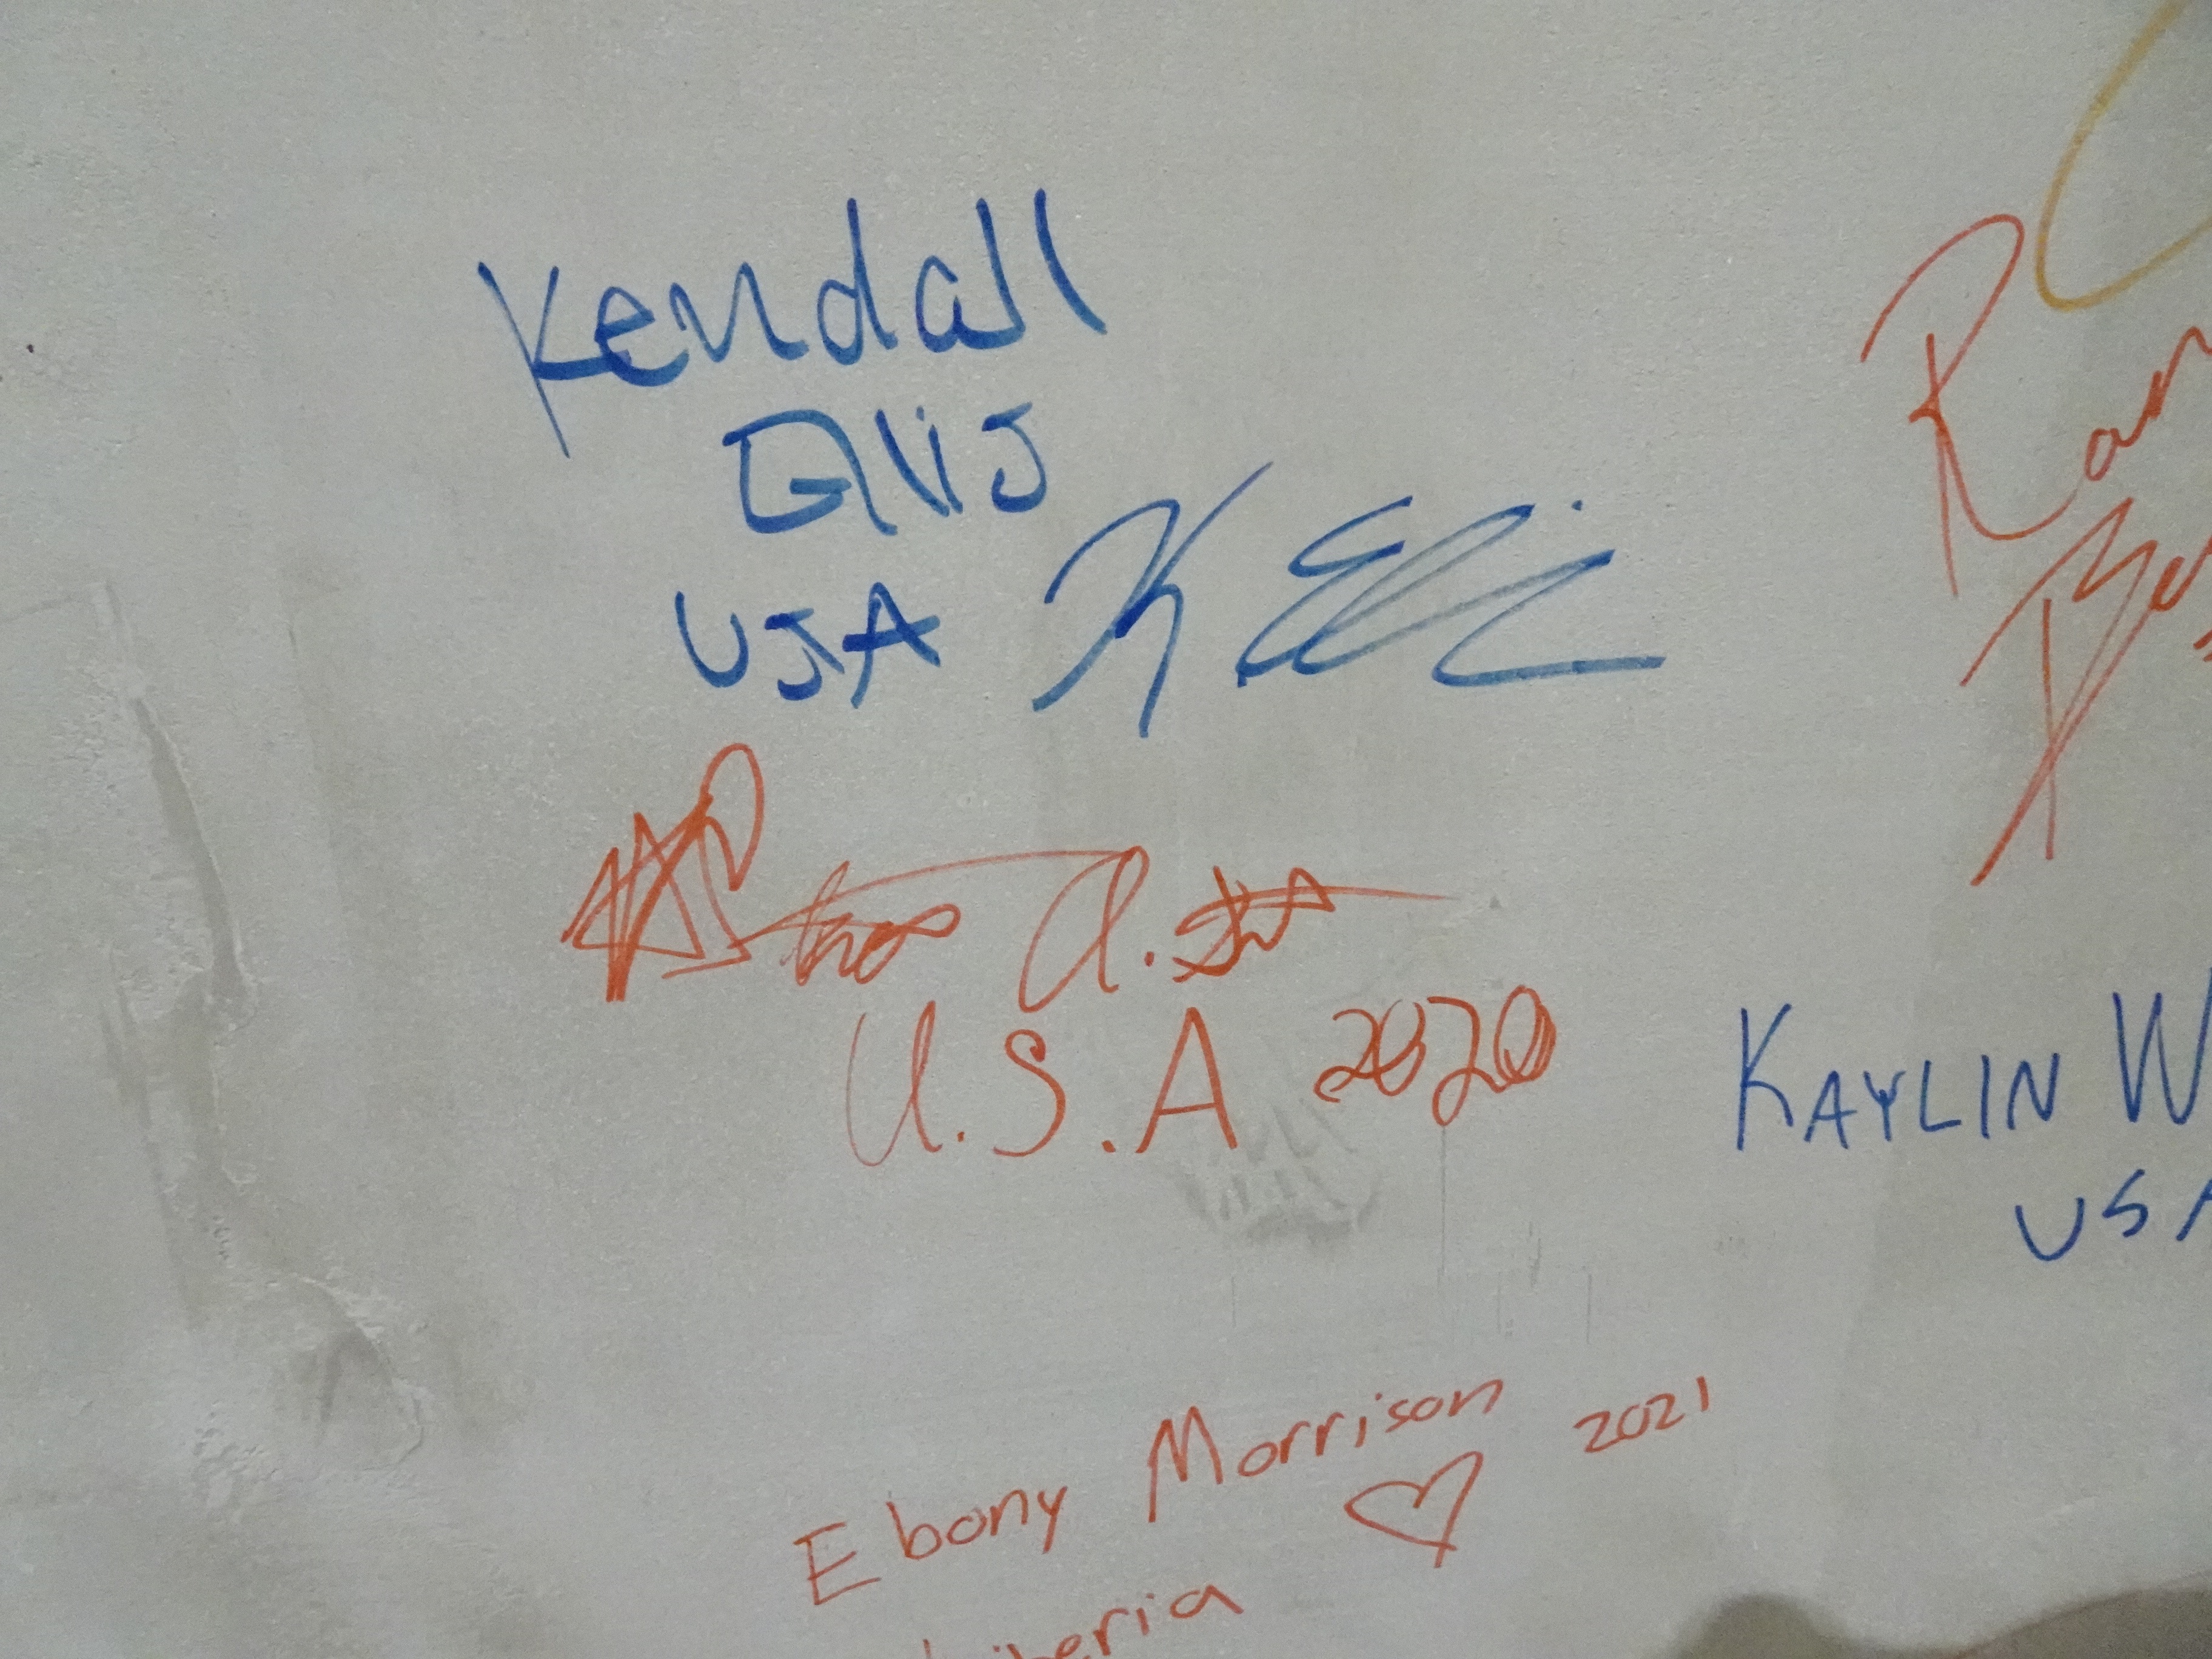 Kendall
Ellis
USA K Ellis
U.S.A 2020
KAYLIN W
USA
Ebony Morrison 2021
Liberia